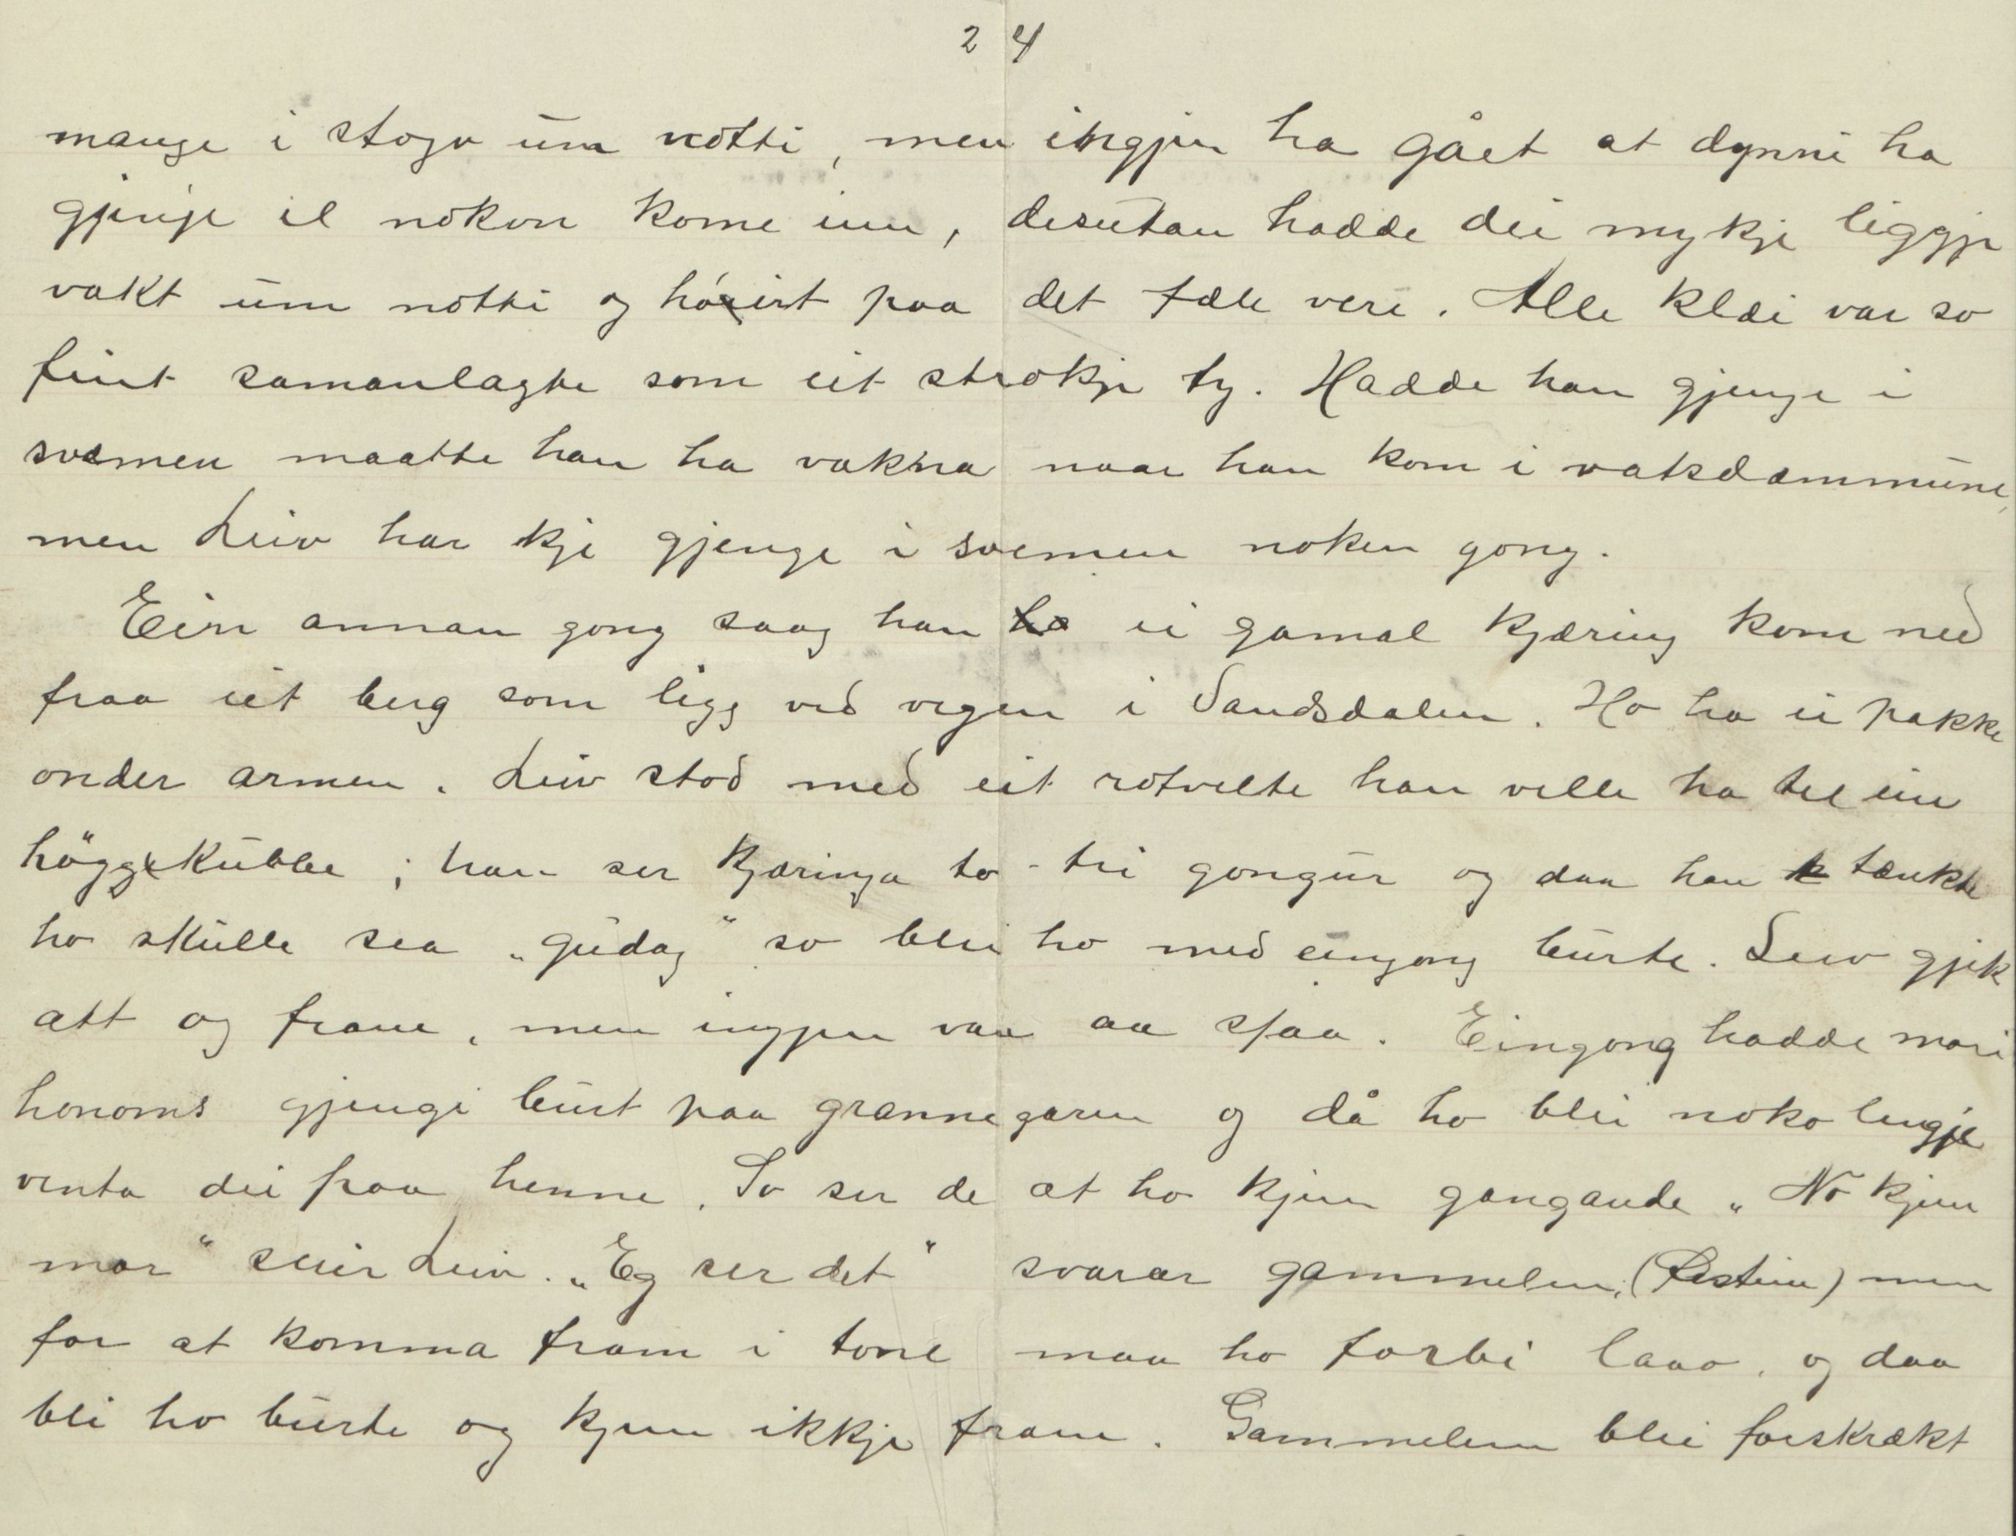 24
mange i stogo um notti, men ingjen ha gået at dynni ha
gjenje el nokon kome inn, desutan hadde dei mykje liggje
vakt um notti og höirt paa det fæle vere. Alle klæi var so
fint samanlagte som eit strokje ty. Hadde han gjenge i
svemen maatte han ha vakna naar han kom i vatsdammune,
men Leiv har kje gjenge i svemen noken gong.
Ein annan gong saag han ei gamal kjæring kom ned
fraa eit berg som ligg ved vegen i Sandsdalen. Ho ha ei pakke
onder armen. Leiv stod med eit rotvelte han ville ha tel ein
höggkubbe; han ser kjæringa to-tri gongur og daa han tænkte
ho skulle sea „gudag" so blei ho med eingong burte. Leiv gjek
att og fram, men ingjen var aa sjaa. Eingong hadde mori
honoms gjengi burt paa grannegaren og då ho blei noko lengje
venta dei paa henne. So ser de at ho kjem gangande „No kjem
mor" seier Leiv. „Eg ser det" svarar gammelen, (Østein) men
for at komma fram i tone maa ho forbi laao, og daa
bli ho burte og kjem ikkje fram. Gammelen blei forskrækt